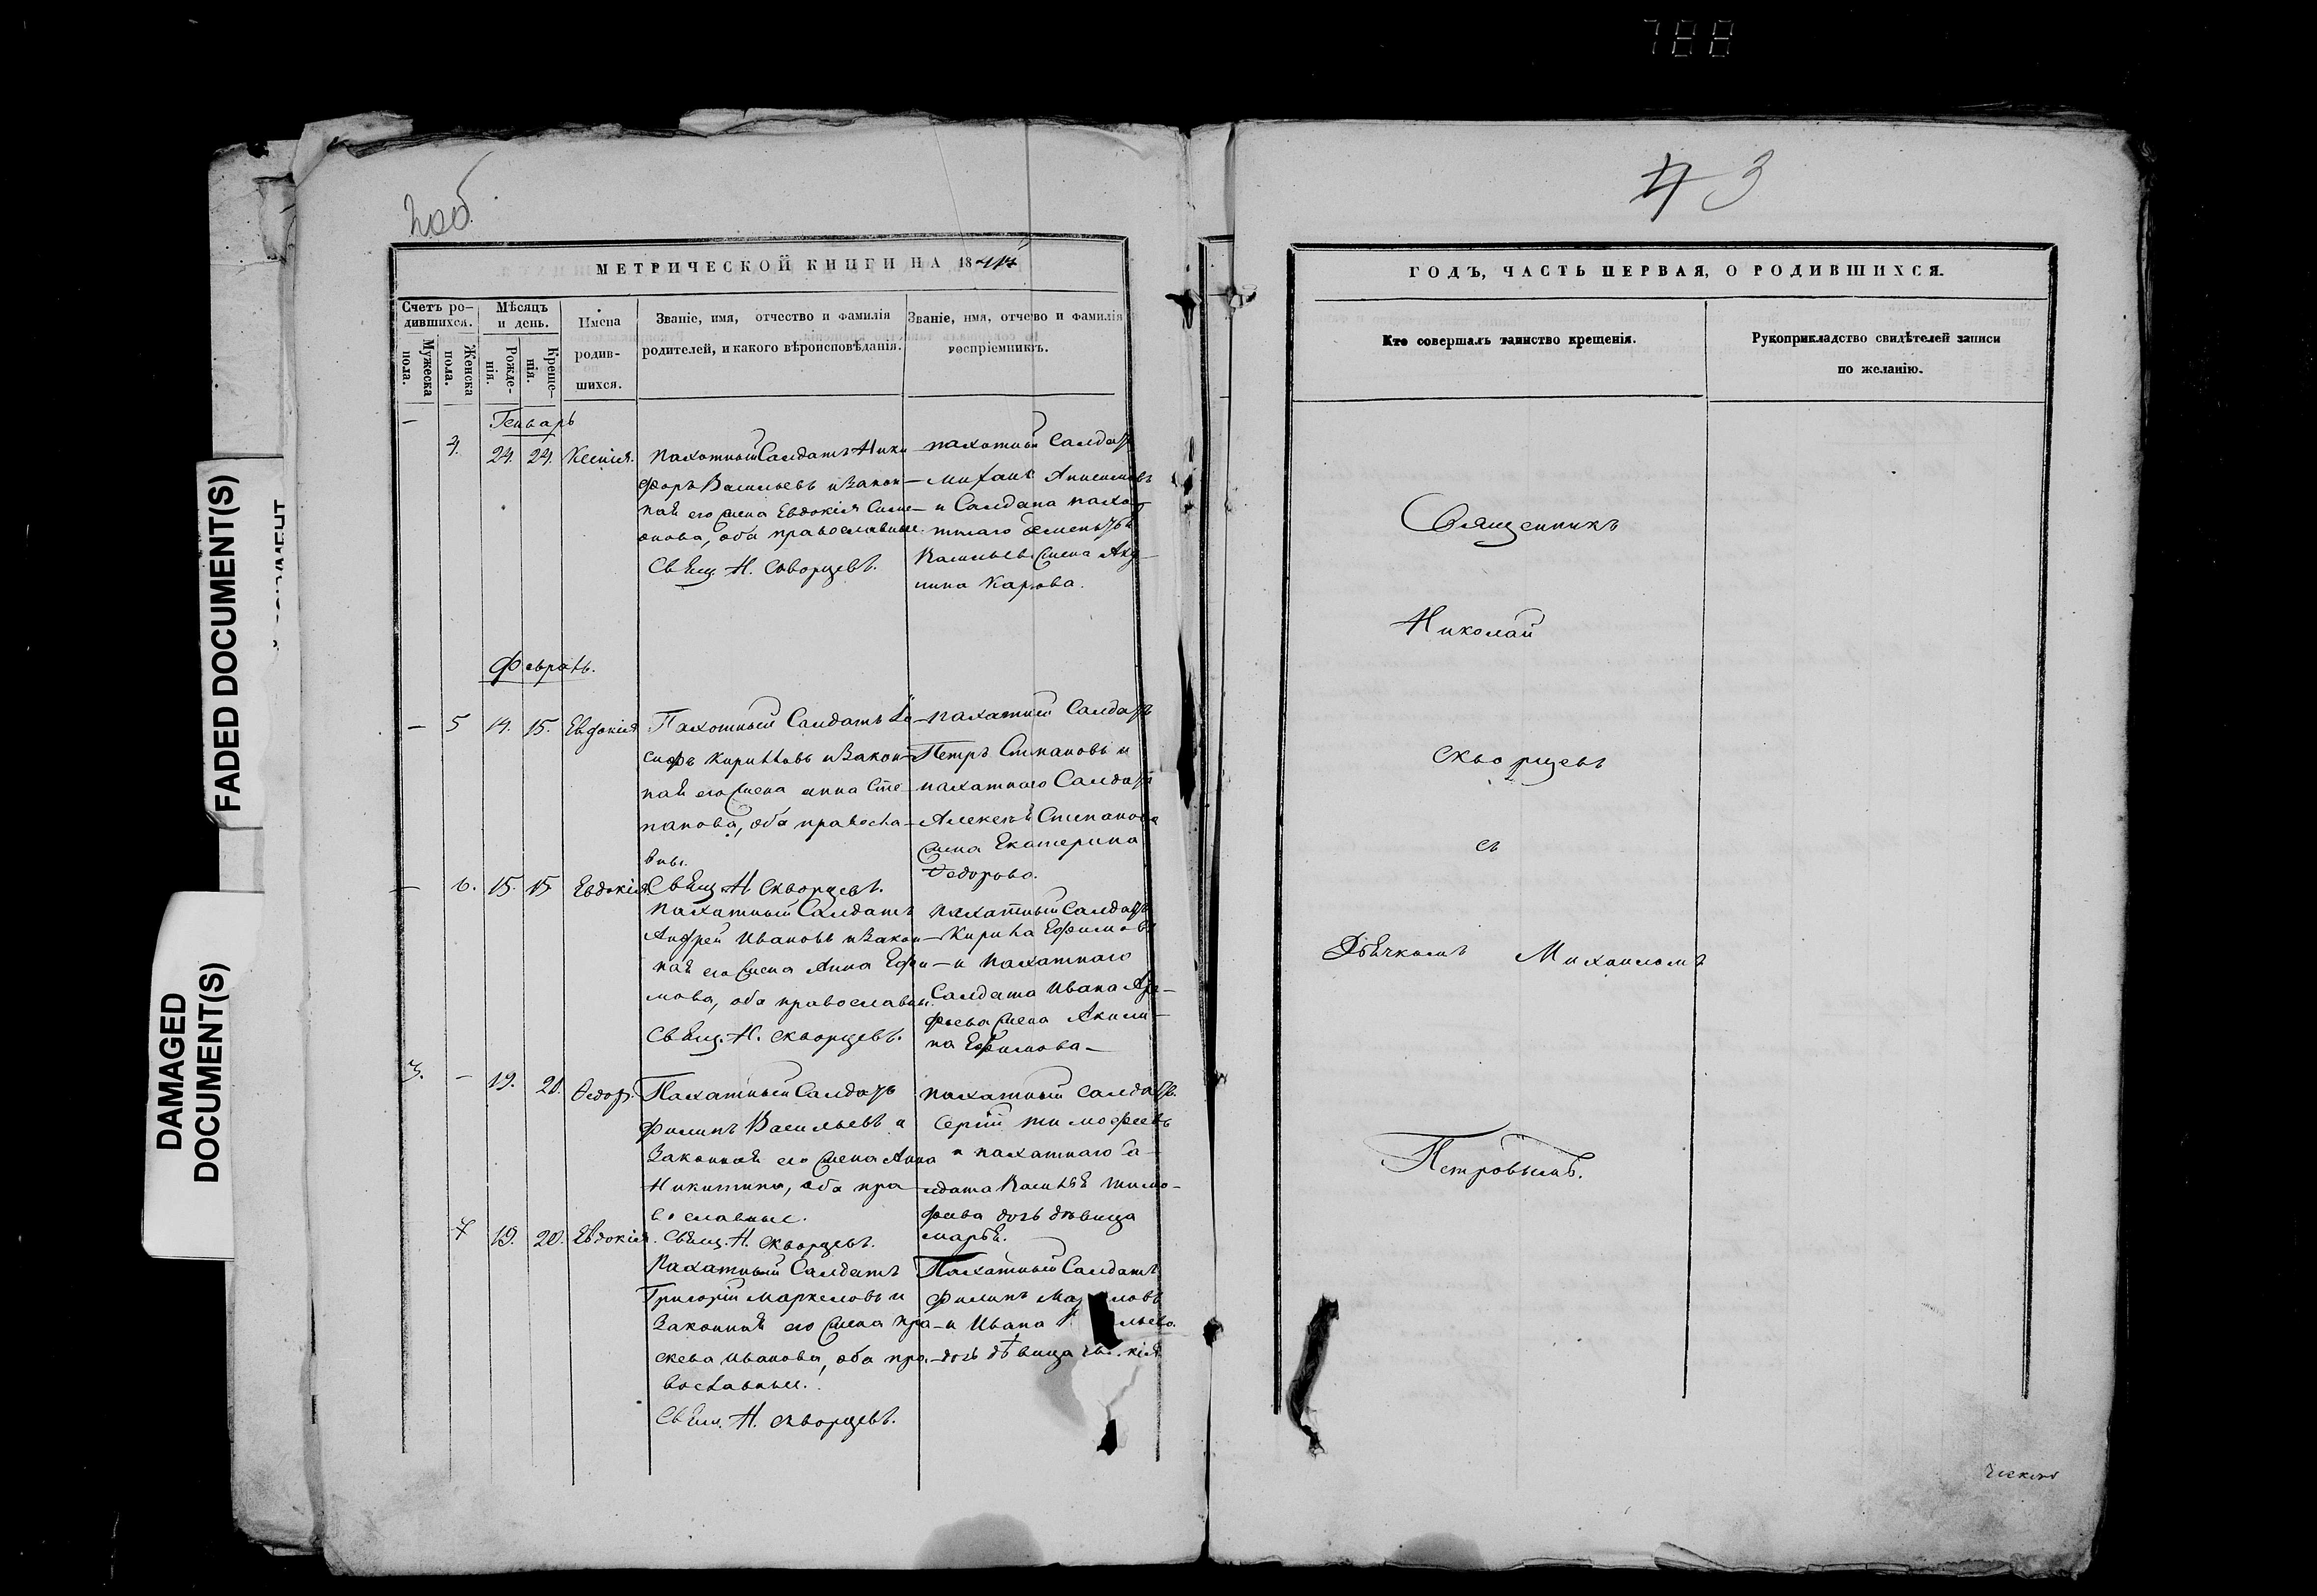 788
FADED DOCUMENT(S)
DAMAGED
DOCUMENT(S)
2об
МЕТРИЧЕСКОЙ КНИГИ НА 18
Счетъ ро-
дившихся.
Мужеска
пола.
Женска
пола.
Мѣсяцъ
и день.
Рожде-
нія.
Креще-
нія.
Имена
родив-
шихся.
Званіе, имя, отчество и фамилія
родителей, и какого вѣроисповѣданія.
Званіе, имя, отчество и фамилія
воспріемниковъ.
Генварь
4. 24. 24. Ксенія.
Пахотный Салдатъ Ники
форъ Васильевъ и Закон-
ная его жена Евдокія Симе-
онова, оба православные
Свящ. Н. Скворцевъ.
пахотный Салдатъ
Михаилъ Анисимовъ
и Салдата пахот
тнаго
Васильева жена Аку-
лина Карпова.
Февраль.
— 5 14. 15. Евдокія
Пахотный Салдатъ Іо-
сифъ Кириловъ и Закон-
ная его жена Анна Сте-
панова, оба правосла-
вны.
Свящ. Н. Скворцевъ.
пахатный Салдатъ
Петръ Степановъ и
пахатнаго Салдата
Алексея Степанова
жена Екатерина
Федорова.
— 6. 15. 15 Евдокія
Пахатный Салдатъ
Андрей Ивановъ и Закон-
ная его жена Анна Ефи-
мова, оба православны.
Свящ. Н. Скворцевъ.
пахатный Салдатъ
Кирила Ефимовъ
и пахатнаго
Салдата Ивана Аре-
фьева жена Акили-
на Ефимова—
3. — 19. 20. Ѳедоръ.
Пахатный Салдатъ
Филипъ Васильевъ и
Законная его жена Анна
Никитина, оба пра-
вославные.
Свящ. Н. Скворцевъ.
пахатный Салдатъ
Сергій Тимофеевъ
и пахатнаго Са-
лдата Василья Тимо-
феева дочь дѣвица
Марья.
7 19. 20. Евдокія.
Пахатный Салдатъ
Григорій Маркеловъ и
Законная его жена Пра-
скева Иванова, оба пра-
вославные.
Свящ. Н. Скворцевъ.
Пахатный Салдатъ
Филипъ
и Ивана
дочь дѣвица
43
ГОДЪ, ЧАСТЬ ПЕРВАЯ, О РОДИВШИХСЯ.
Кто совершалъ таинство крещенія.
Рукоприкладство свидѣтелей записи
по желанію.
Священникъ
Николай
Скворцевъ
съ
Дьячкомъ Михаиломъ
Петровымъ.